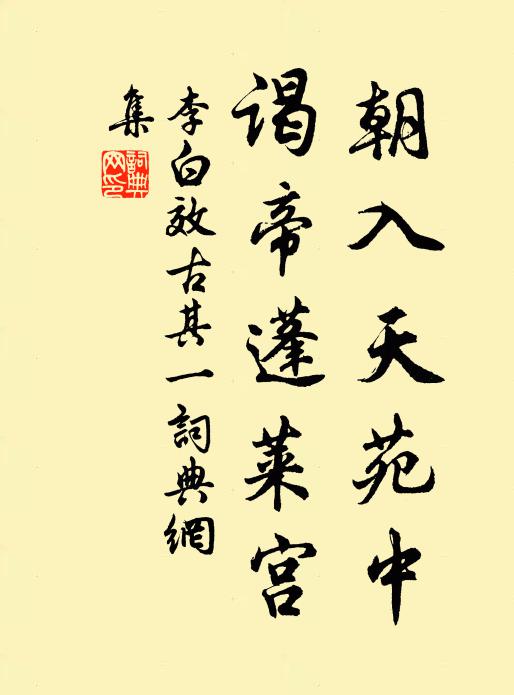 朝入天苑中
谒帝蓬莱宫
李白效古其一詞典網
集
詞典
网印